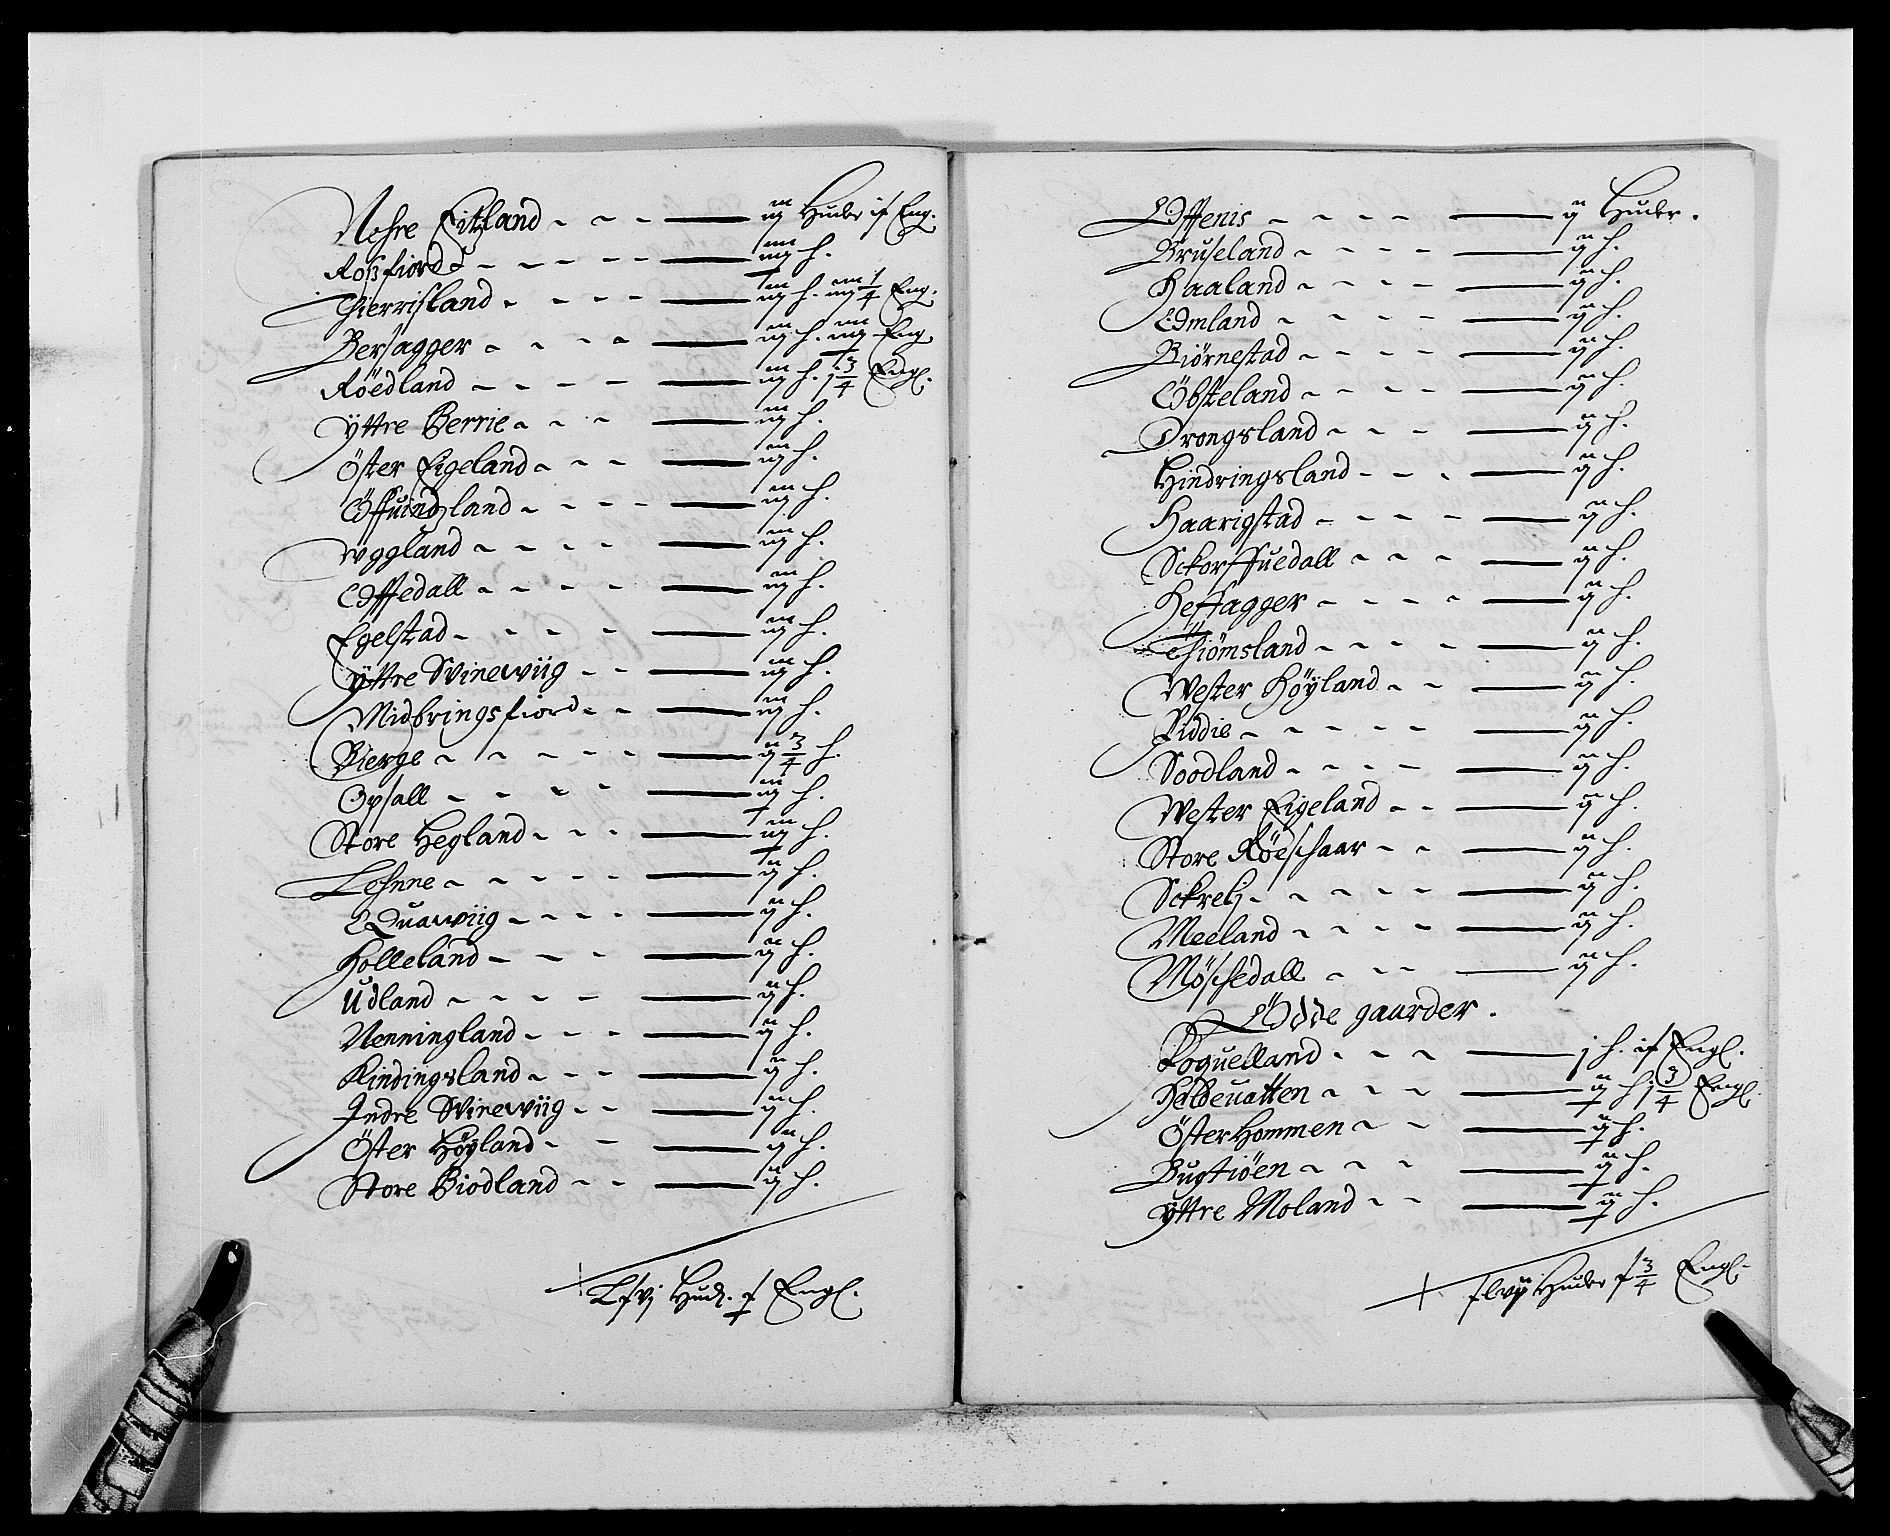 Nehre Eitzland - - - iij Huder if Eng.
Roßfiord - - - - - iiij h.
Gierrisland - - - - iij h. iiij 1/4 Eng.
Bersagger - - - - iij h. iiij Eng.
Röedland - - - - iij h. j 3/4 Engl.
Yttre Berrie - - - iij h.
Öster Eigeland - - - iij h.
Öffuindzland - - - - iij h.
Wggland - - - - iij h.
Edffedall - - - - iij h.
Egelstad - - - - iij h.
Yttre Svinewiig - - iij h.
Midbringsfiord - - iij h.
Bierge - - - - - ij 3/4 h.
Opsall - - - - iij h.
Store Hegland - - - iij h.
Lehnne - - - - - ij h.
Quawiig - - - - ij h.
Holleland - - - - ij h.
Udland - - - - ij h.
Nenningland - - - ij h.
Rindingsland - - - ij h.
Indre Svinewiig - - ij h.
Öster Höyland - - ij h.
Store Biodland - - ij h.
Lxvj Hud. f Engl.
Edffenis - - - - ij Huder.
Bruseland - - - - ij h.
Haaland - - - - ij h.
Edmland - - - - ij h.
Biörnestad - - - - ij h.
Ebsteland - - - - ij h.
Drongsland - - - ij h.
Hindringsland - - - ij h.
Haarigstad - - - - ij h.
Sckorffuedall - - - ij h.
Heffagger - - - - ij h.
Thiömsland - - - - ij h.
Wester Höyland - - ij h.
Piddie - - - - - ij h.
Soodland - - - - ij h.
Wester Eigeland - - ij h.
Store Röeschaar - - ij h.
Sckreh - - - - - ij h.
Meeland - - - - ij h.
Möschedall - - - ij h.
Ödde gaarder.
Foquelland - - - j h. if Engl.
Haldeuatten - - - ij h j 3/4 Engl
Öster Hommen - - ij h.
Bugtiöen - - - ij h.
Yttre Moland - - ij h.
Huder f 3/4 Engl.